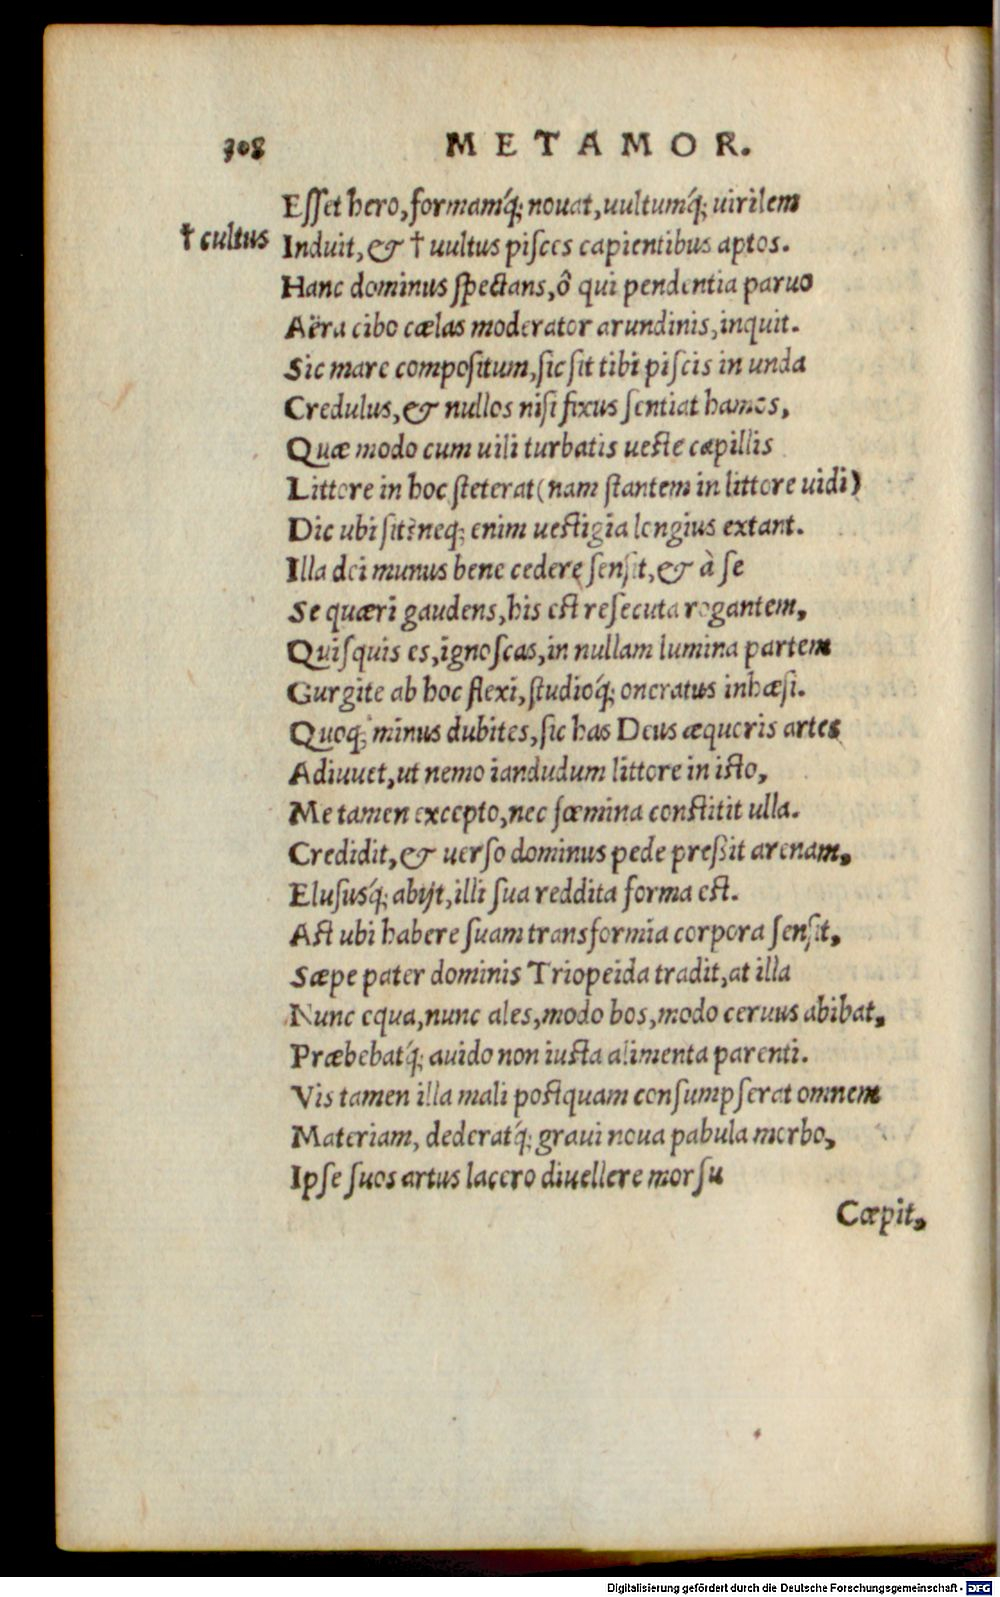 308 METAMOR.
Esset hero, formamq́; nouat, uultumq́; uirilem
† cultus Induit, & † uultus pisces capientibus aptos.
Hanc dominus spectans, ô qui pendentia paruo
Aëra cibo cælas moderator arundinis, inquit.
Sic mare compositum, sic sit tibi piscis in unda
Credulus, & nullos nisi fixus sentiat hamos,
Quæ modo cum uili turbatis ueste capillis
Littore in hoc steterat (nam stantem in littore uidi)
Dic ubi sit: neq; enim uestigia longius extant.
Illa dei munus bene cedere sensit, & à se
Se quæri gaudens, his est resecuta rogantem,
Quisquis es, ignoscas, in nullam lumina partem
Gurgite ab hoc flexi, studioq́; oneratus inhæsi.
Quoq; minus dubites, sic has Deus æquoris artes
Adiuuet, ut nemo iandudum littore in isto,
Me tamen excepto, nec fœmina constitit ulla.
Credidit, & uerso dominus pede preßit arenam,
Elususq́; abijt, illi sua reddita forma est.
Ast ubi habere suam transformia corpora sensit,
Sæpe pater dominis Triopeida tradit, at illa
Nunc equa, nunc ales, modo bos, modo ceruus abibat,
Præbebatq́; auido non iusta alimenta parenti.
Vis tamen illa mali postquam consumpserat omnem
Materiam, dederatq́; graui noua pabula morbo,
Ipse suos artus lacero diuellere morsu
Cœpit,
Digitalisierung gefördert durch die Deutsche Forschungsgemeinschaft - DFG